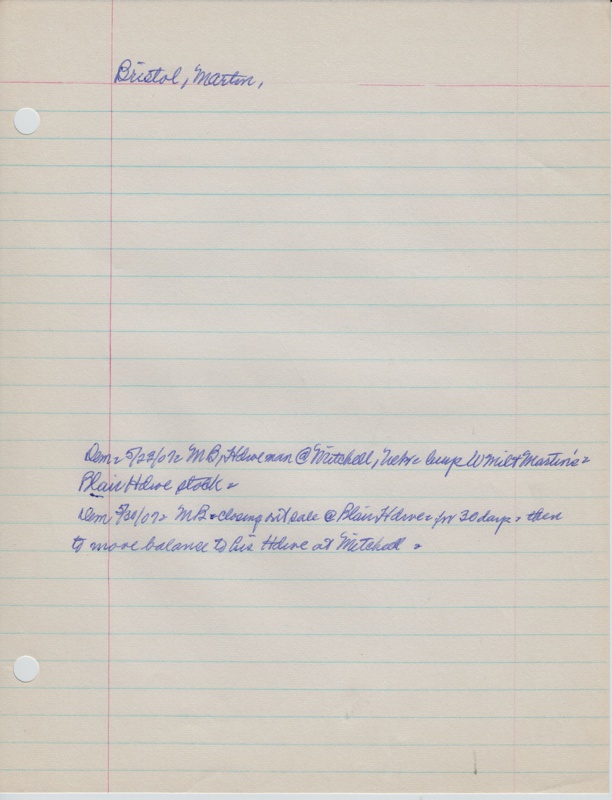 Bristol, Martin,
Dem = 5/23/07 = M B, Hdwe man @ Mitchell, Nebr = buys W Milt Martin's =
Blair Hdwe stock =
Dem 5/30/07 = M B = closing out sale @ Blair Hdwe = for 30 days = then
to move balance to his Hdwe at Mitchell =